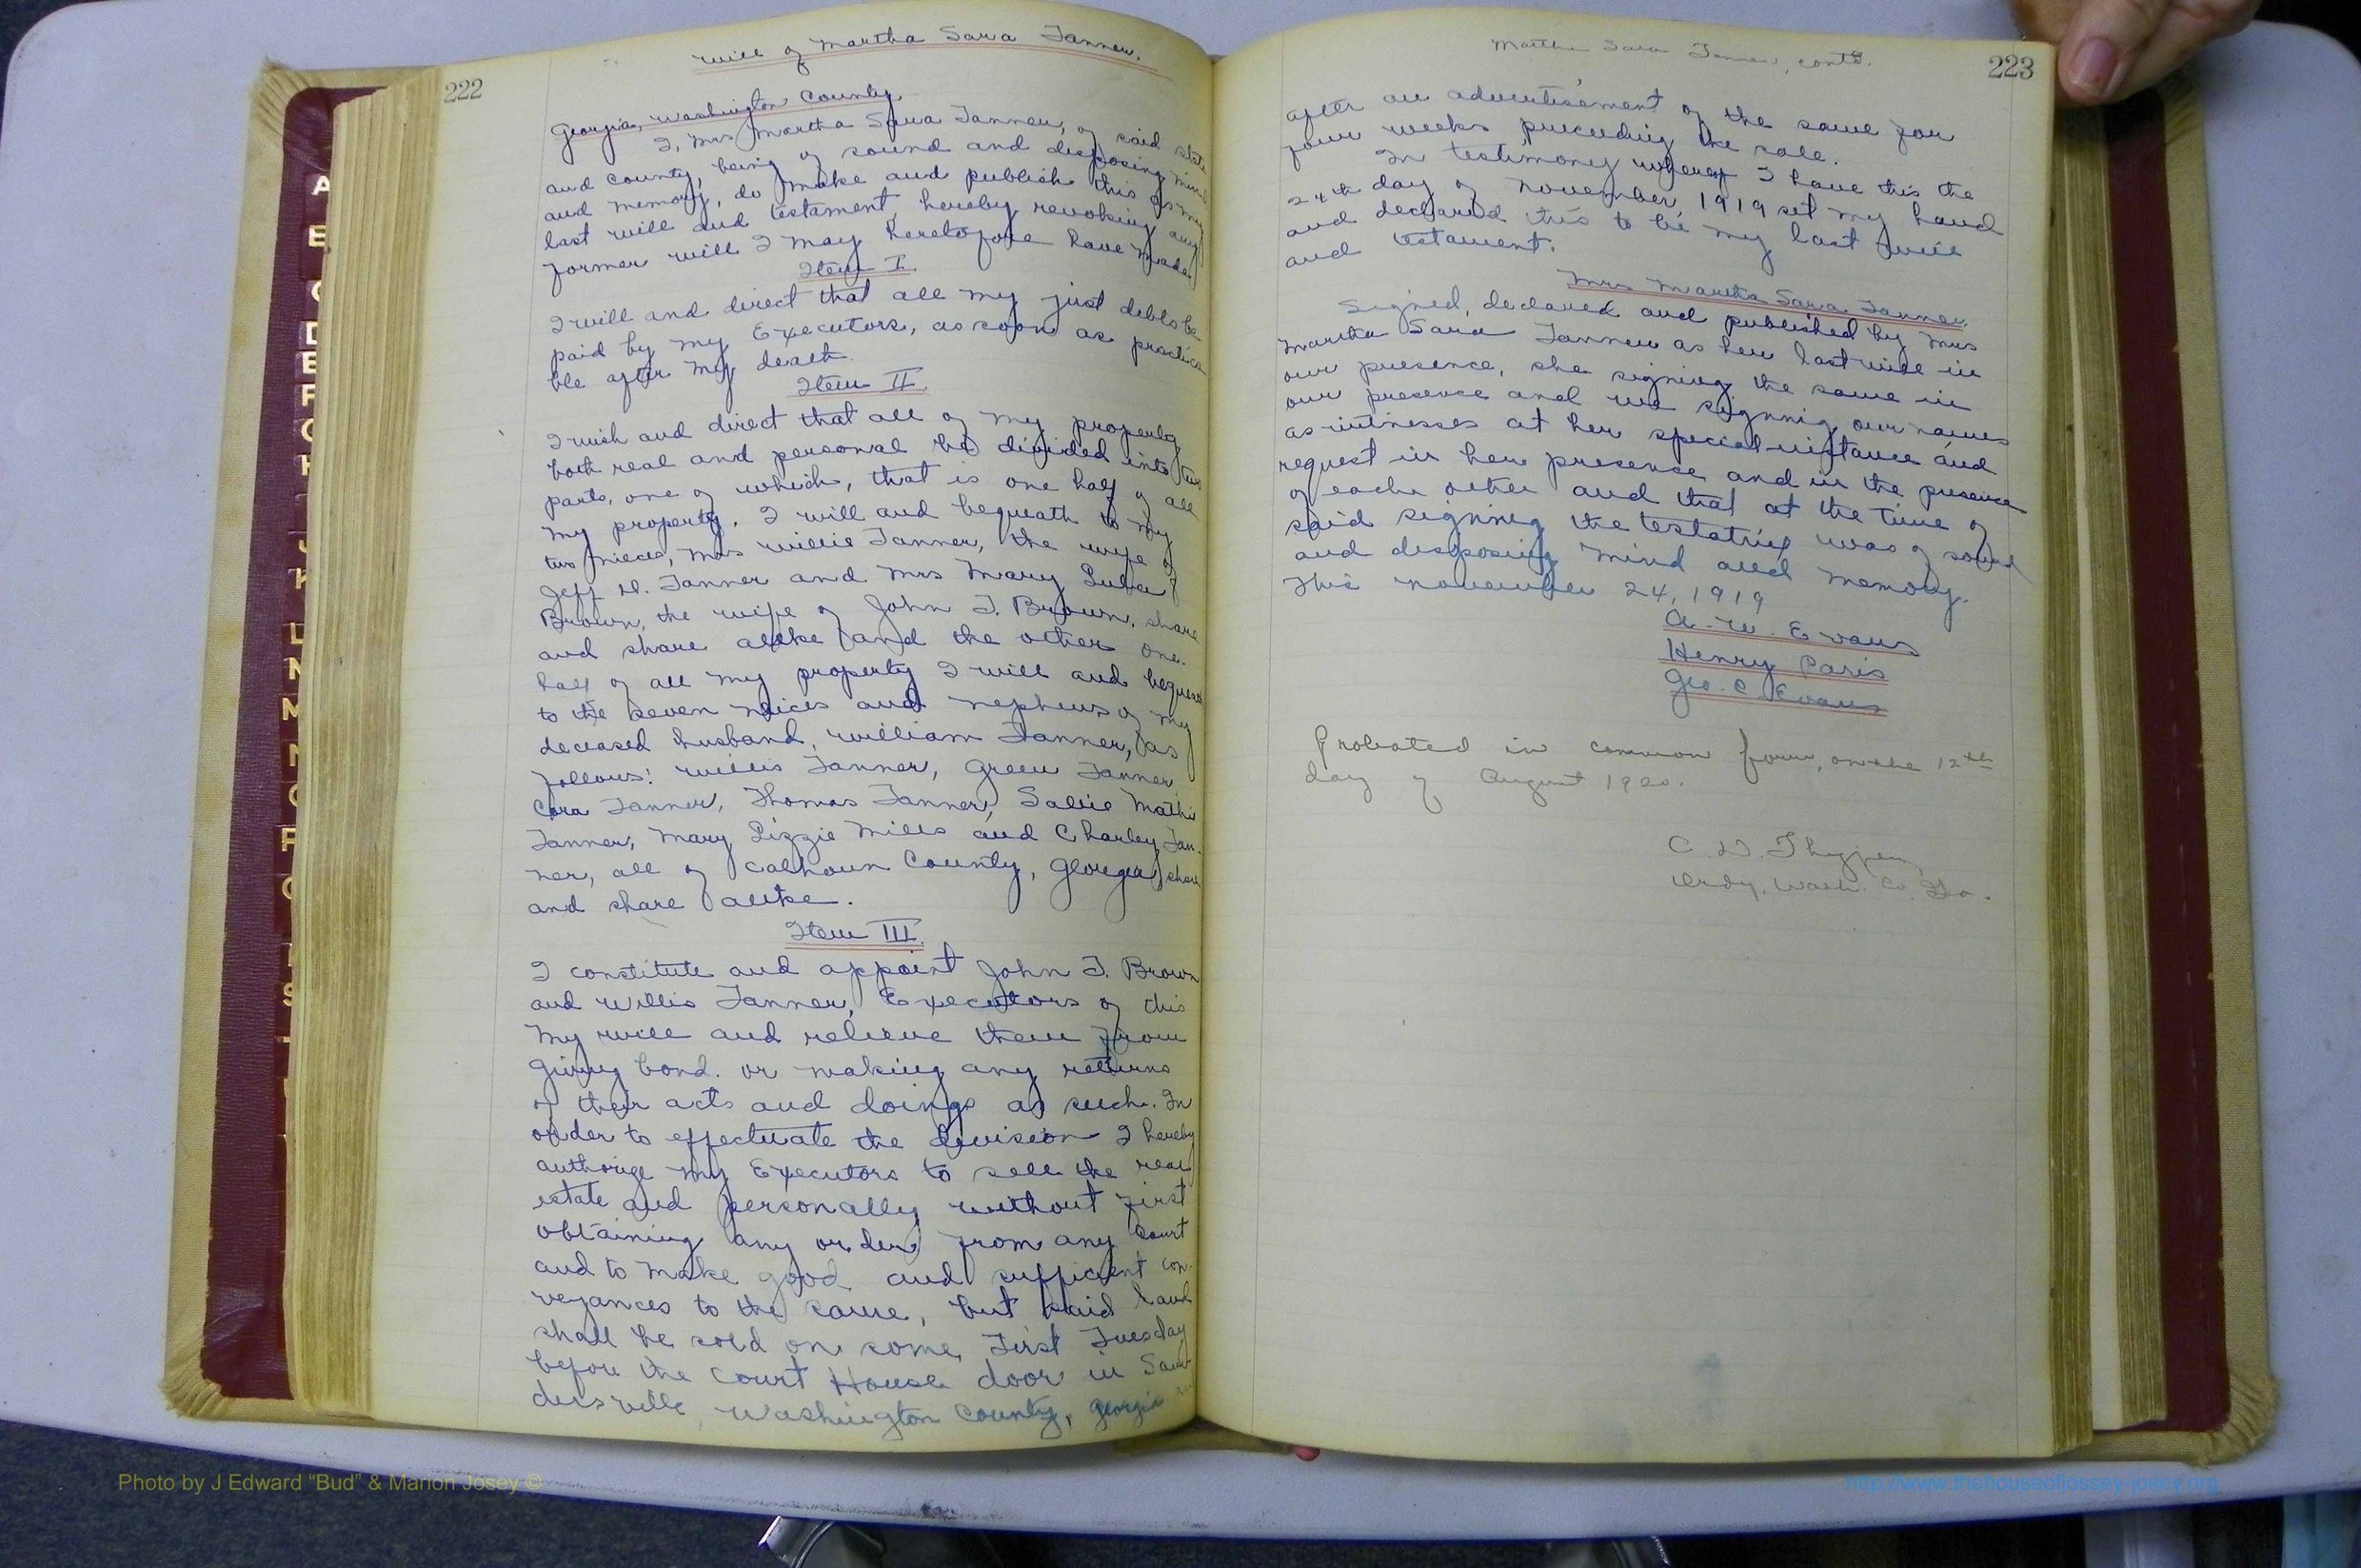 222
Will of Martha Sara Tanner.
Georgia, Washington County
I, Mrs Martha Sara Tanner, of said state
and county, being of sound and disposing mind
and memory, do make and publish this as my
last will and testament, hereby revoking any
former will I may heretofore have made.
Item I.
I will and direct that all my just debts be
paid by my Executors, as soon as practica
ble after my death.
Item II.
I wish and direct that all of my property
both real and personal be divided into two
parts, one of which, that is one half of all
my property, I will and bequeath to my
two nieces, Mrs Willie Tanner, the wife of
Jeff D. Tanner and Mrs Mary
Brown, the wife of John T. Brown, share
and share alike and the other one
half of all my property I will and bequeath
to the seven nieces and nephews of my
deceased husband, William Tanner, as
follows: Willis Tanner, Green Tanner
Cora Tanner, Thomas Tanner, Sallie Mathis
Tanner, Mary Lizzie Mills and Charley Tan-
ner, all of Calhoun County, Georgia, share
and share alike.
Item III.
I constitute and appoint John T. Brown
and Willis Tanner, Executors of this
my will and relieve them from
giving bond. or making any returns
of their acts and doings as such. In
order to effectuate the division I hereby
authorize my Executors to sell the real
estate and personally without first
obtaining any order from any Court
and to make good and sufficient con-
veyances to the same, but said land
shall be sold on some First Tuesday
before the Court House door in San
dersville, Washington County, Georgia
Martha Sara Tanner, cont'd.
223
after an advertisement of the same for
four weeks preceeding the sale.
In testimony whereof I have this the
24th day of November, 1919 set my hand
and declared this to be my last will
and testament.
Mrs Martha Sara Tanner.
Signed, declared and published by Mrs
Martha Sara Tanner as her last will in
our presence, she signing the same in
our presence and we signing our names
as witnesses at her special instance and
request in her presence and in the presence
of each other and that at the time of
said signing the testatrix was of sound
and disposing mind and memory.
This November 24, 1919
A. W. Evans
Henry Paris
Geo. C. Evans
Probated in common form, on the 12th
day of August 1920.
C. D. Thigpen,
Ordy, Wash. Co. Ga.
Photo by J Edward “Bud” & Marion Josey ©
http://www.thehouseofjossey-josey.org